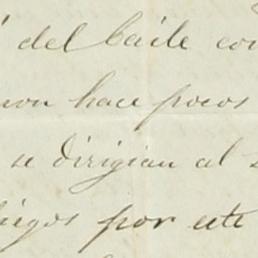 del baile con
hace pocos
se dirigian al
por este